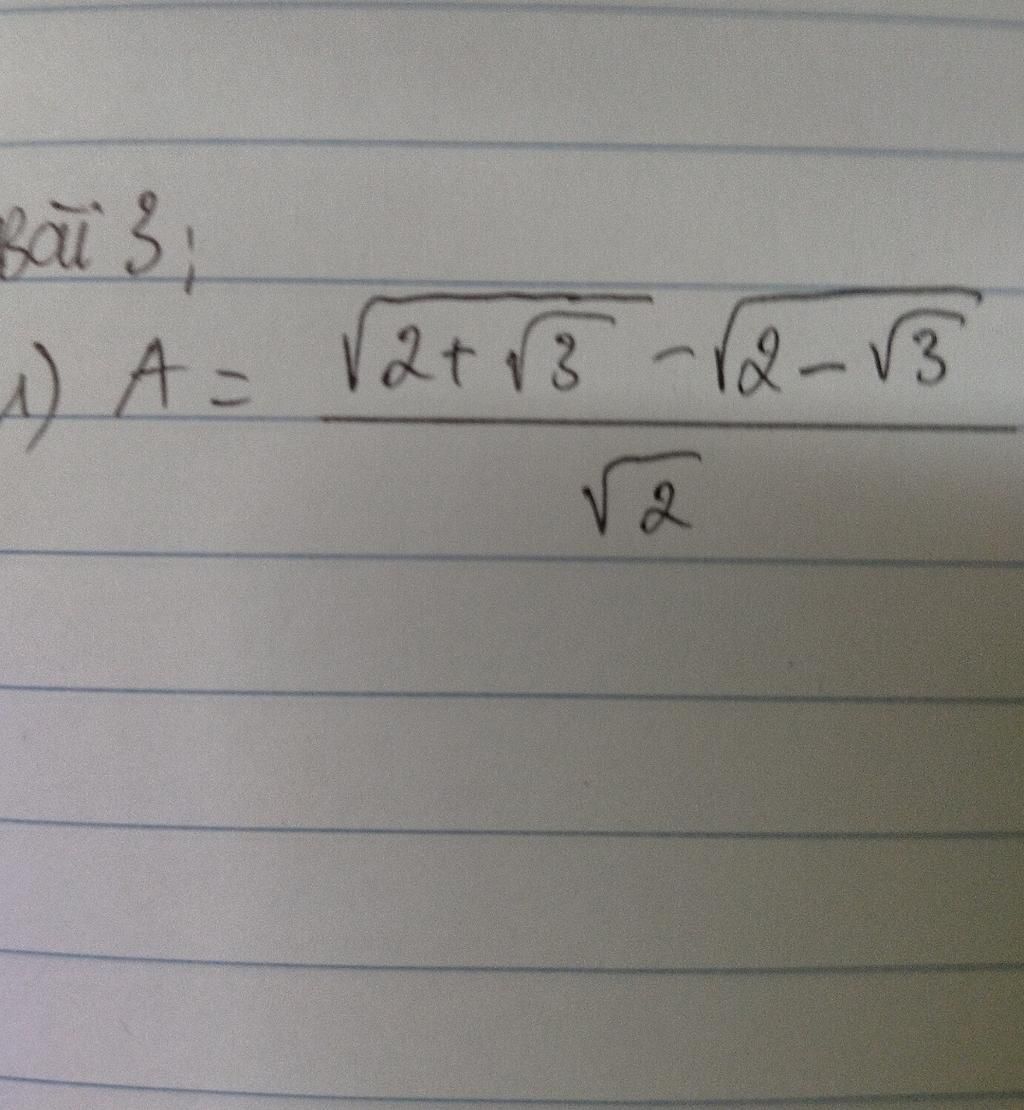 Bài 3;
1) A = \frac{\sqrt{2+\sqrt{3}} - \sqrt{2-\sqrt{3}}}{\sqrt{2}}